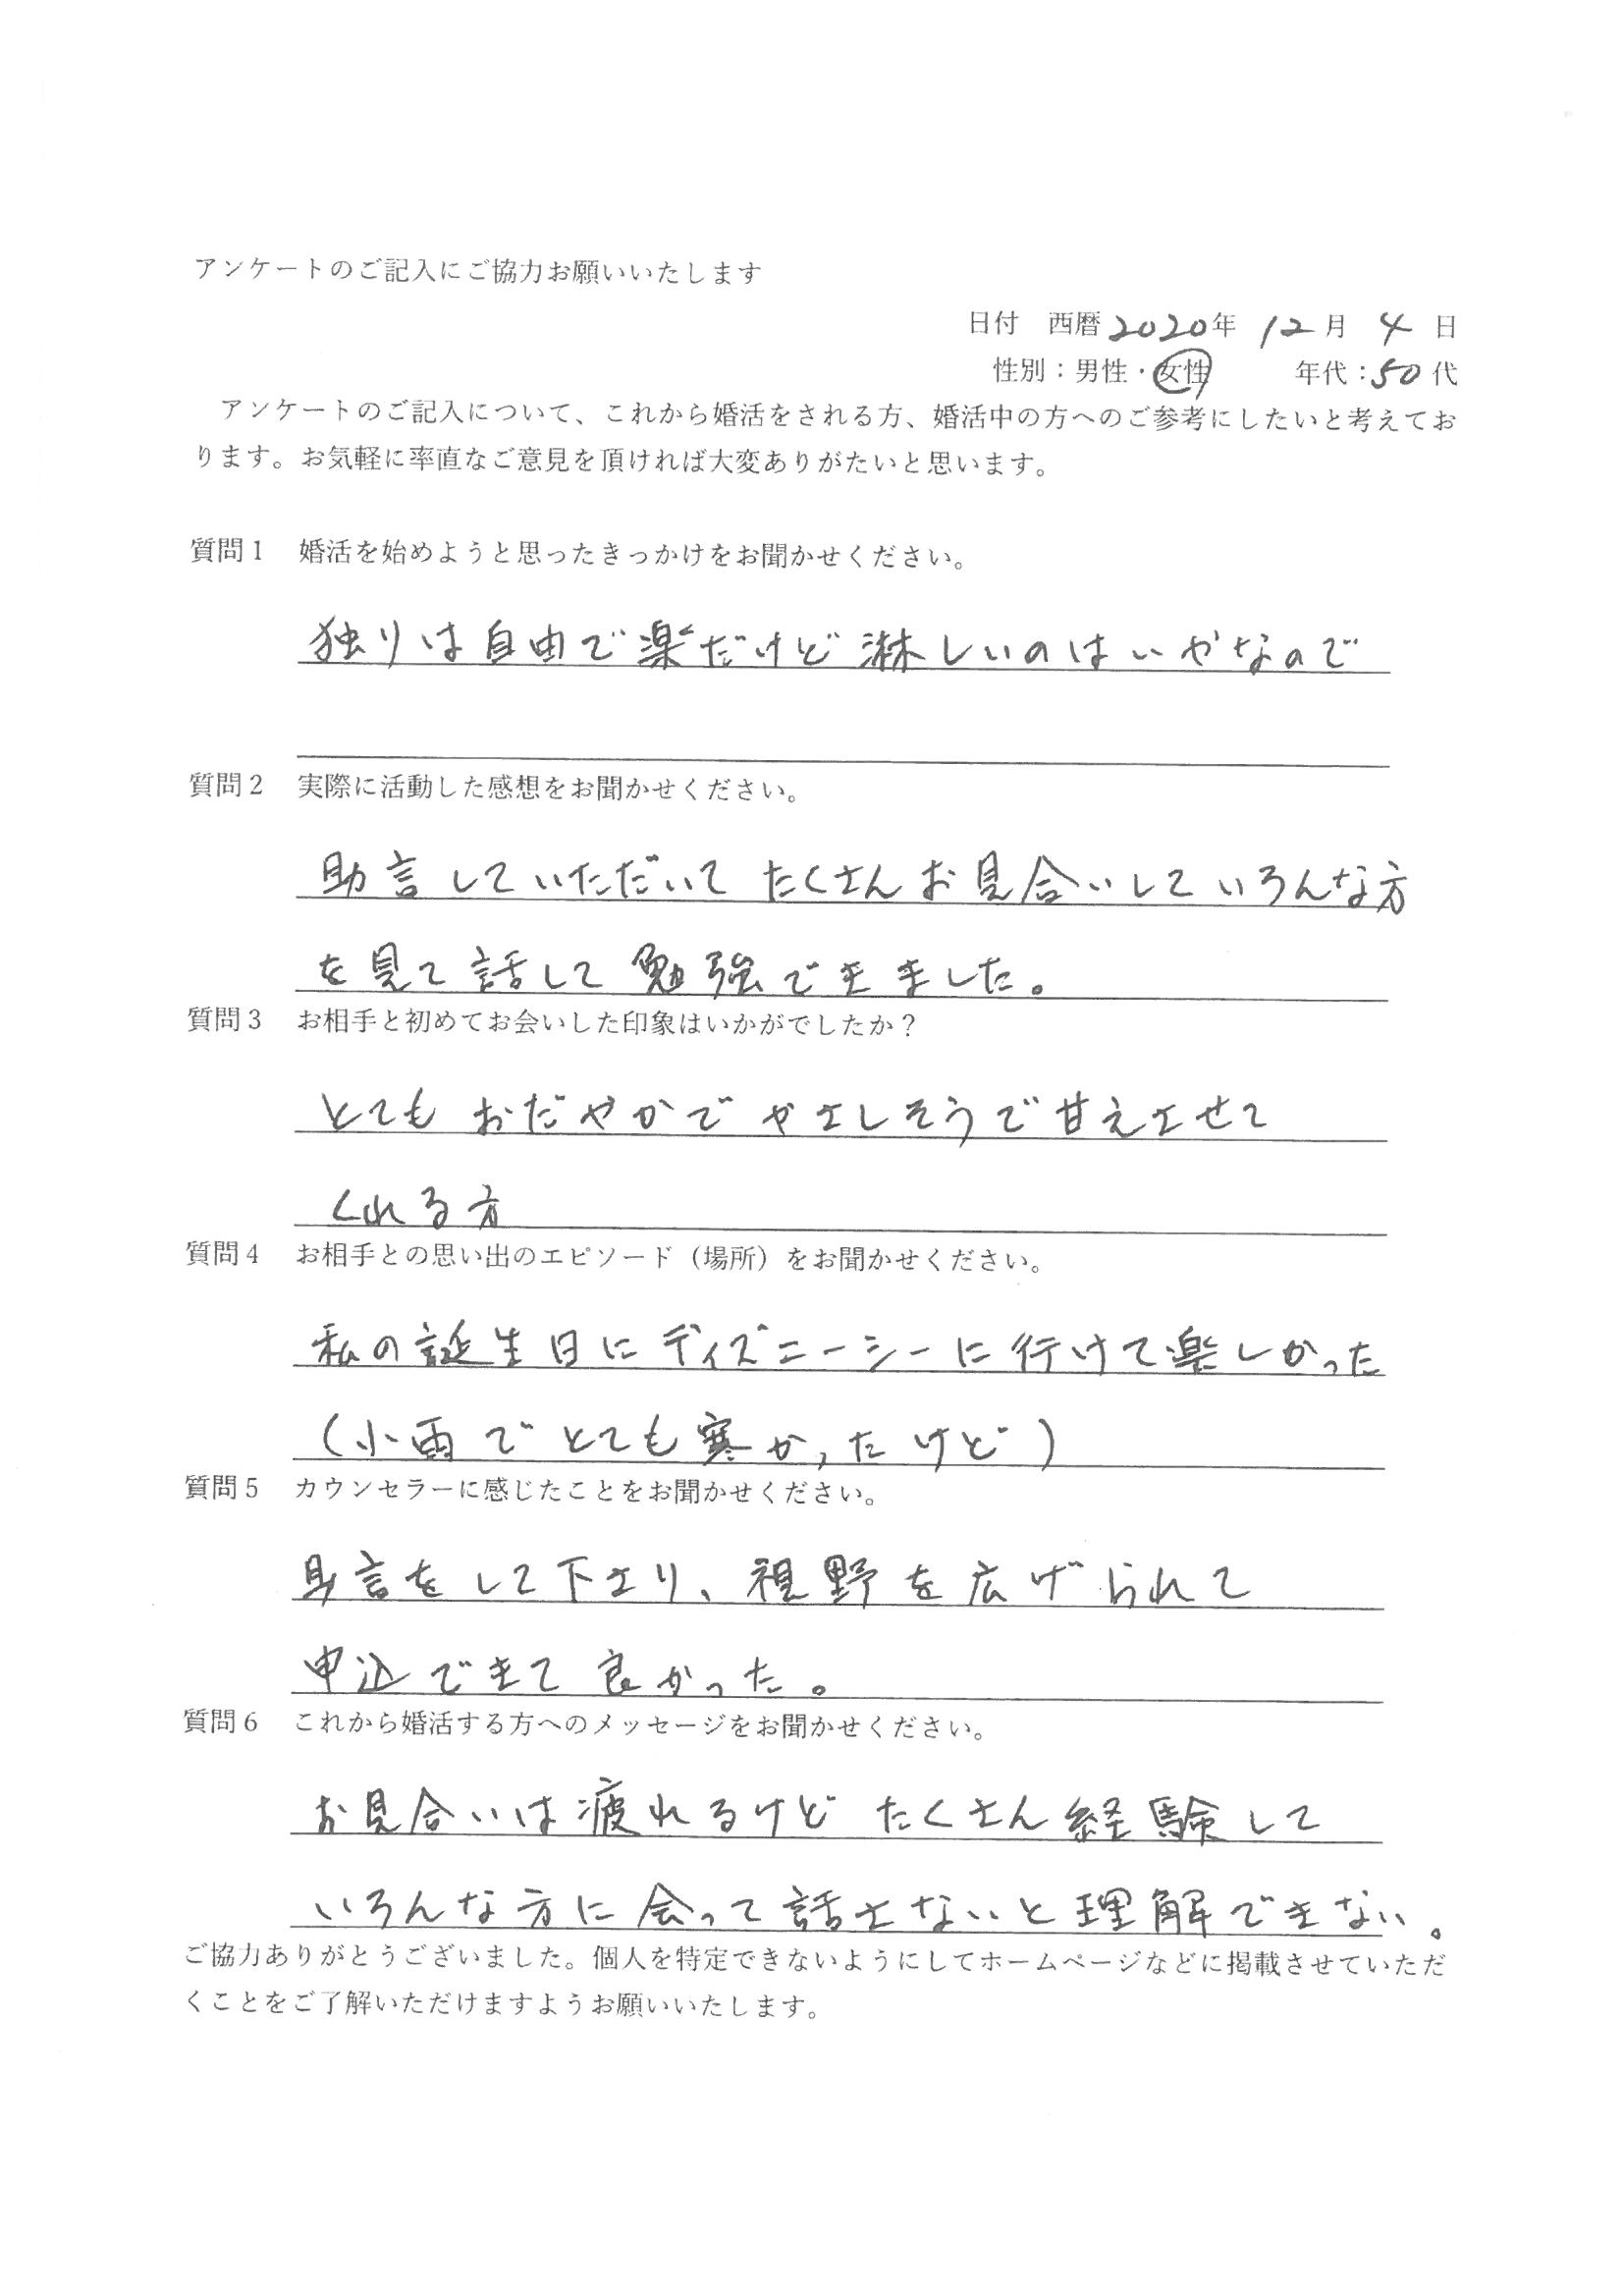 アンケートのご記入にご協力お願いいたします
日付　西暦2020年 12月 4日
性別：男性・女性　年代：50代
アンケートのご記入について、これから婚活をされる方、婚活中の方へのご参考にしたいと考えてお
ります。お気軽に率直なご意見を頂ければ大変ありがたいと思います。
質問1　婚活を始めようと思ったきっかけをお聞かせください。
独りは自由で楽だけど淋しいのはいやなので
質問2　実際に活動した感想をお聞かせください。
助言していただいて たくさんお見合いしていろんな方
を見て話して勉強できました。
質問3　お相手と初めてお会いした印象はいかがでしたか？
とても おだやかで やさしそうで甘えさせて
くれる方
質問4　お相手との思い出のエピソード（場所）をお聞かせください。
私の誕生日にディズニーシーに行けて楽しかった
(小雨でとても寒かったけど)
質問5　カウンセラーに感じたことをお聞かせください。
助言をして下さり、視野を広げられて
申込できて良かった。
質問6　これから婚活する方へのメッセージをお聞かせください。
お見合いは疲れるけど たくさん経験して
いろんな方に会って話さないと理解できない。
ご協力ありがとうございました。個人を特定できないようにしてホームページなどに掲載させていただ
くことをご了解いただけますようお願いいたします。